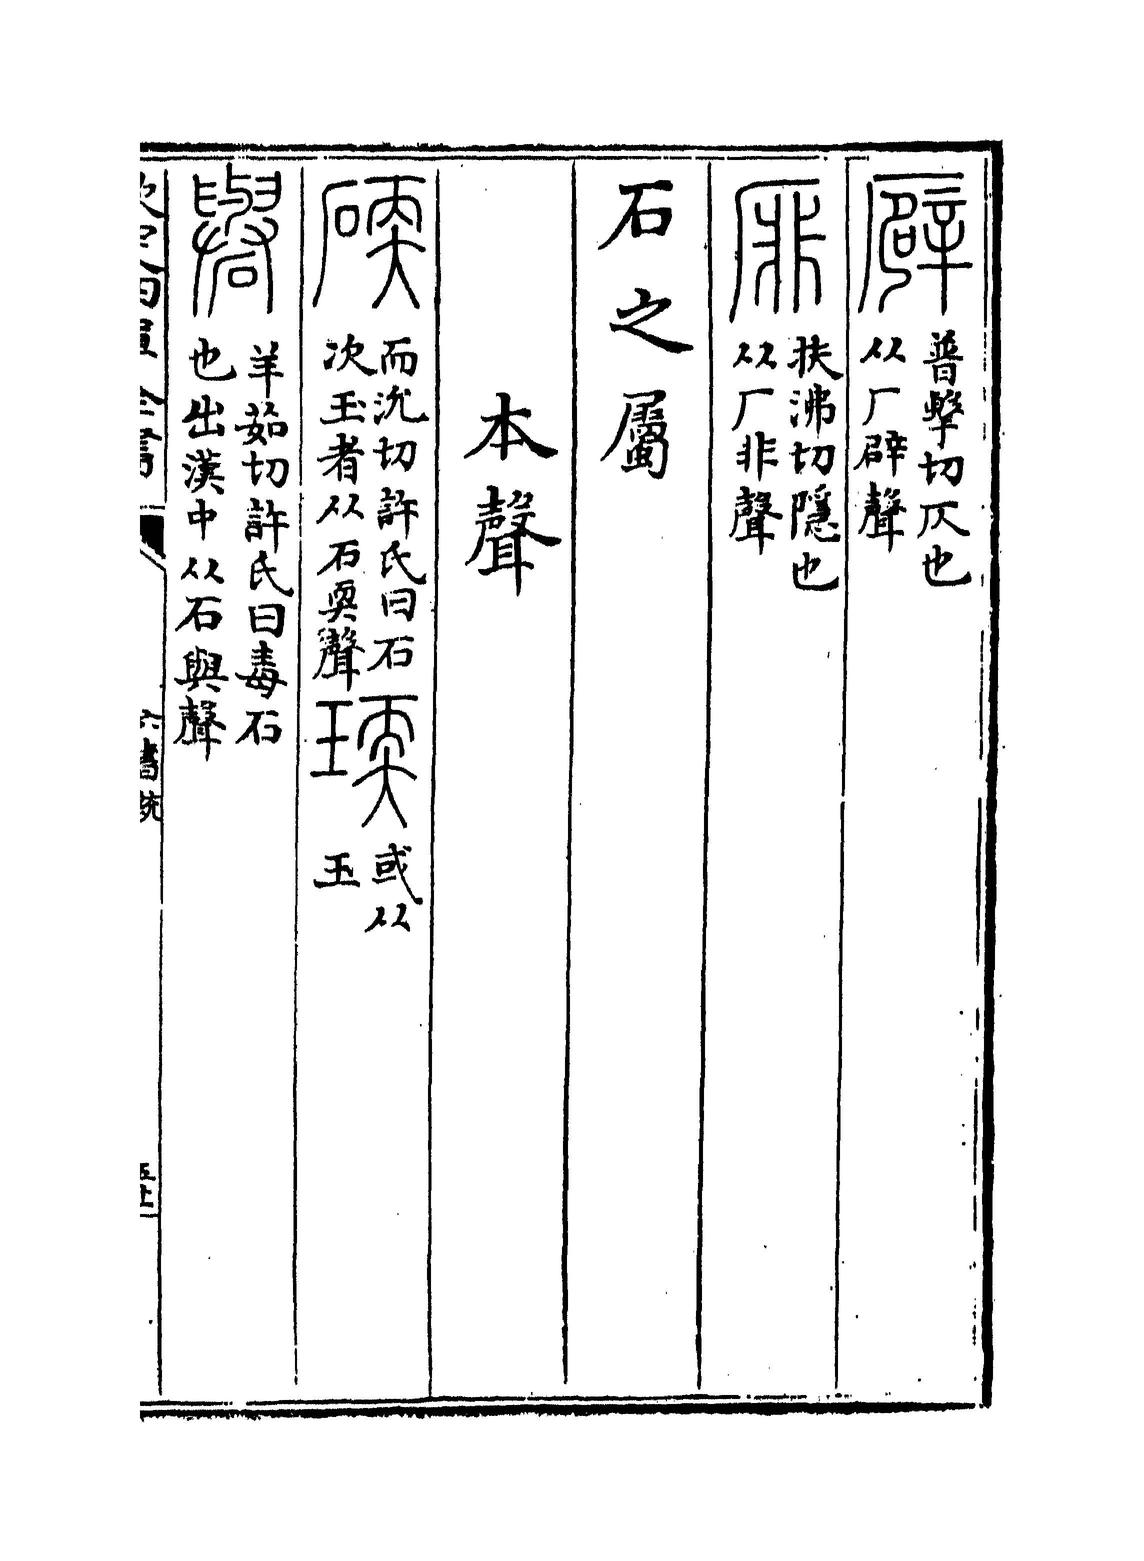 𠪮普擊切仄也从厂辟聲
厞扶沸切隱也从厂非聲
石之屬
本聲
碝而沇切許氏曰石次玉者从石耎聲瑌或从玉
礜羊茹切許氏曰毒石也出漢中从石與聲
欽定四庫全書
六書統